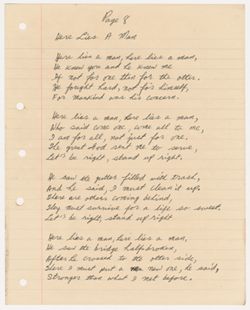 Page 8
Here Lies A Man
Here lies a man, here lies a man,
He knew you and he knew me
If not for one then for the other.
He fought hard, not for himself,
For mankind was his concern.
Here lies a man, here lies a man,
Who said come one, come all to me,
I am for all, not just for one.
The great God sent me to serve,
Let's be right, stand up right.
He saw the gutter filled with trash,
And he said, I must clean it up.
There are others coming behind,
They must survive for a life so sweet.
Let's be right, stand up right
Here lies a man, here lies a man,
He saw the bridge half broken,
After he crossed to the other side,
Here I must put a new one, he said,
Stronger than what I met before.